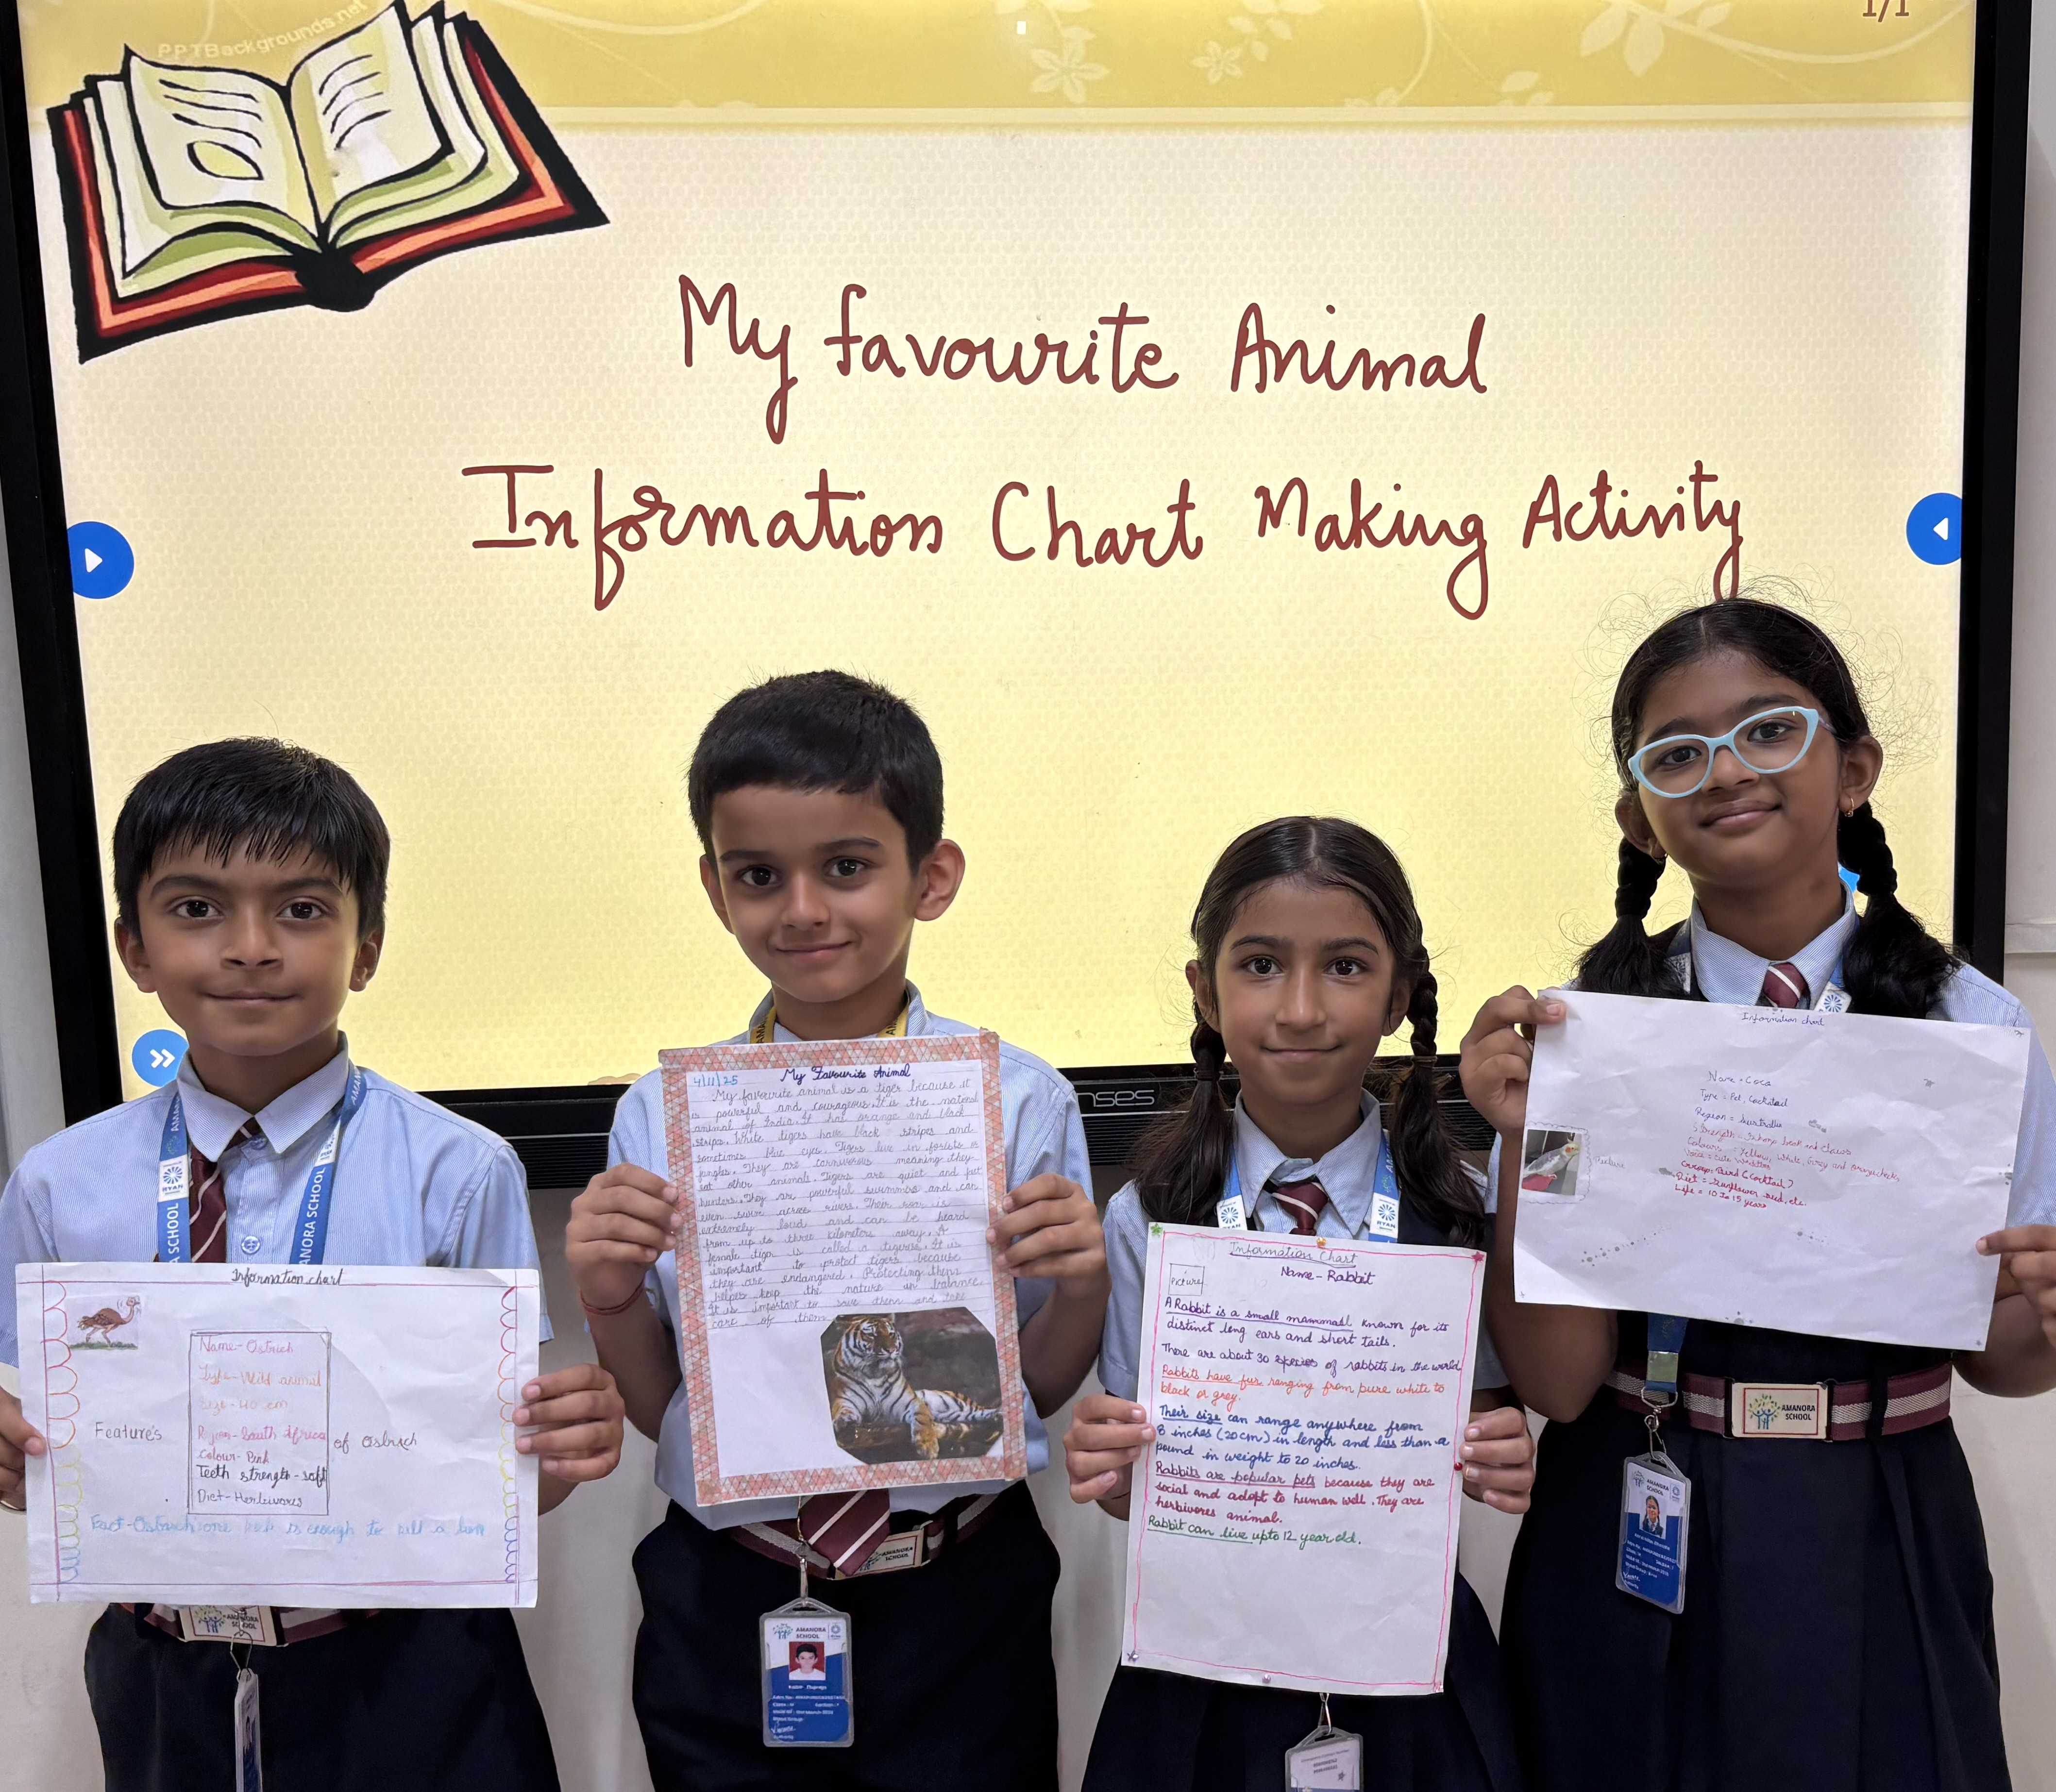 PPTBackgrounds.net
1/1
My favourite Animal
Information Chart Making Activity
Information chart
Name-Ostrich
Type-Wild animal
40 cm
Region-South Africa
Colour-Pink
Teeth strength-soft
Diet-Herbivores
Feature's
of Ostrich
Fact-Ostrich one kick is enough to kill a lion
4/11/25
My Favourite Animal
My favourite animal is a tiger because it
is powerful and courageous. It is the national
animal of India. It has orange and black
strips. White tigers have black stripes and
sometimes blue eyes. Tigers live in forests or
jungles. They are carnivorous meaning they
eat other animals. Tigers are quiet and fast
hunters. They are powerful swimmers and can
even move across rivers. Their roar is
extremely loud and can be heard
from up to three kilometers away. A
female tiger is called a tigress. It is
important to protect tigers because
they are endangered. Protecting them
helps keep the nature in balance.
It is important to save them and take
care of them
Information Chart
Name-Rabbit
Picture
A Rabbit is a small mammal known for its
distinct long ears and short tails.
There are about 30 species of rabbits in the world
Rabbits have fur ranging from pure white to
black or grey.
Their size can range anywhere from
8 inches (20cm) in length and less than a
pound in weight to 20 inches.
Rabbits are popular pets because they are
social and adopt to human well. They are
herbivores animal.
Rabbit can live upto 12 year old.
Information chart
Name = Coco
Type = Pet, Cocktail
Region = Australia
Strength = Sharp beak and claws
Colours = Yellow, White, Grey and
Group = Bird (Cocktail)
Diet = Sunflower seed, etc.
Life = 10 to 15 years
Picture
AMANORA SCHOOL
RYAN
AMANORA
SCHOOL
AMANORA
SCHOOL
AMANORA
SCHOOL
AMANORA
SCHOOL